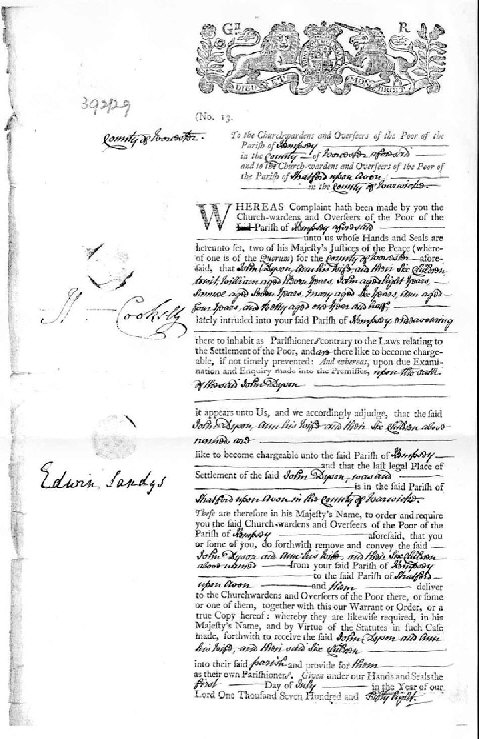 Gᴵᴵ R
DIEU ET MON DROIT
392/29
(No. 13.
County of Worcester.
To the Churchwardens and Overseers of the Poor of the
Parish of Kempsey
in the County of Worcester aforesaid
and to the Church-wardens and Overseers of the Poor of
the Parish of Stratford upon Avon
in the County of Warwick.
WHEREAS Complaint hath been made by you the
Church-wardens and Overseers of the Poor of the
said Parish of Kempsey aforesaid
unto us whose Hands and Seals are
hereunto set, two of his Majesty's Justices of the Peace (where-
of one is of the Quorum) for the County of Worcester afore-
said, that John Dyson, Ann his Wife and their Six Children
to wit, William aged Years, John aged Eight Years,
aged Seven Years, Mary aged Six Years, Ann aged
four Years, and Betty aged one Year and half,
lately intruded into your said Parish of Kempsey endeavouring
there to inhabit as Parishioners contrary to the Laws relating to
the Settlement of the Poor, and are there like to become charge-
able, if not timely prevented: And whereas, upon due Exami-
nation and Enquiry made into the Premisses, upon the Oath
of the said John Dyson
it appears unto Us, and we accordingly adjudge, that the said
John Dyson, Ann his Wife and their Six Children above
named are
like to become chargeable unto the said Parish of Kempsey
and that the last legal Place of
Settlement of the said John Dyson, was and
is in the said Parish of
Stratford upon Avon in the County of Warwick.
These are therefore in his Majesty's Name, to order and require
you the said Church-wardens and Overseers of the Poor of the
Parish of Kempsey aforesaid, that you
or some of you, do forthwith remove and convey the said
John Dyson and Ann his Wife, and their Six Children
above named from your said Parish of Kempsey
to the said Parish of Stratford
upon Avon and them deliver
to the Churchwardens and Overseers of the Poor there, or some
or one of them, together with this our Warrant or Order, or a
true Copy hereof: whereby they are likewise required, in his
Majesty's Name, and by Virtue of the Statutes in such Case
made, forthwith to receive the said John Dyson and Ann
his Wife, and their said Six Children
into their said parish and provide for them
as their own Parishioners. Given under our Hands and Seals the
first Day of July in the Year of our
Lord One Thousand Seven Hundred and Fifty Eight.
H. Cookesly
Edwin Sandys